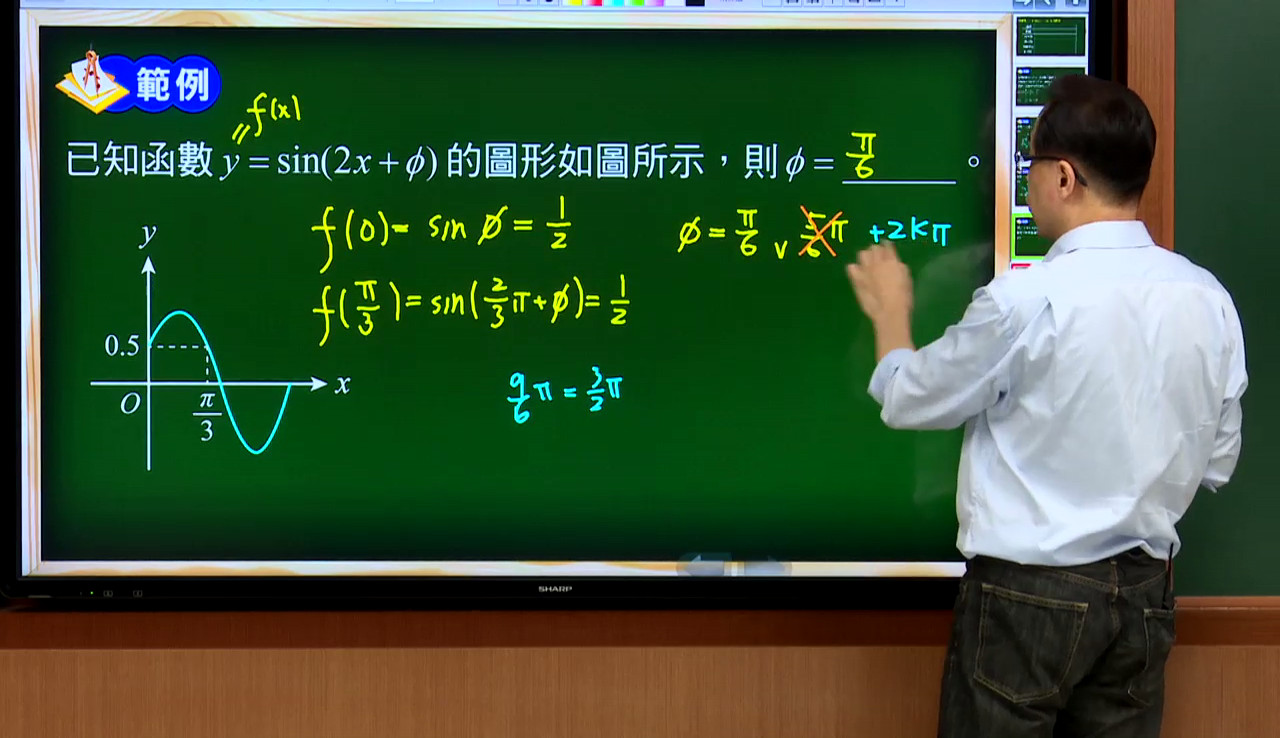 範例
f(x)
〃
已知函數 y = sin(2x + ϕ) 的圖形如圖所示，則 ϕ = π/6 。
f(0) = sin ϕ = 1/2
ϕ = π/6 ∨ 5/6 π + 2kπ
f(π/3) = sin(2/3 π + ϕ) = 1/2
9/6 π = 3/2 π
y
0.5
O
π/3
x
SHARP